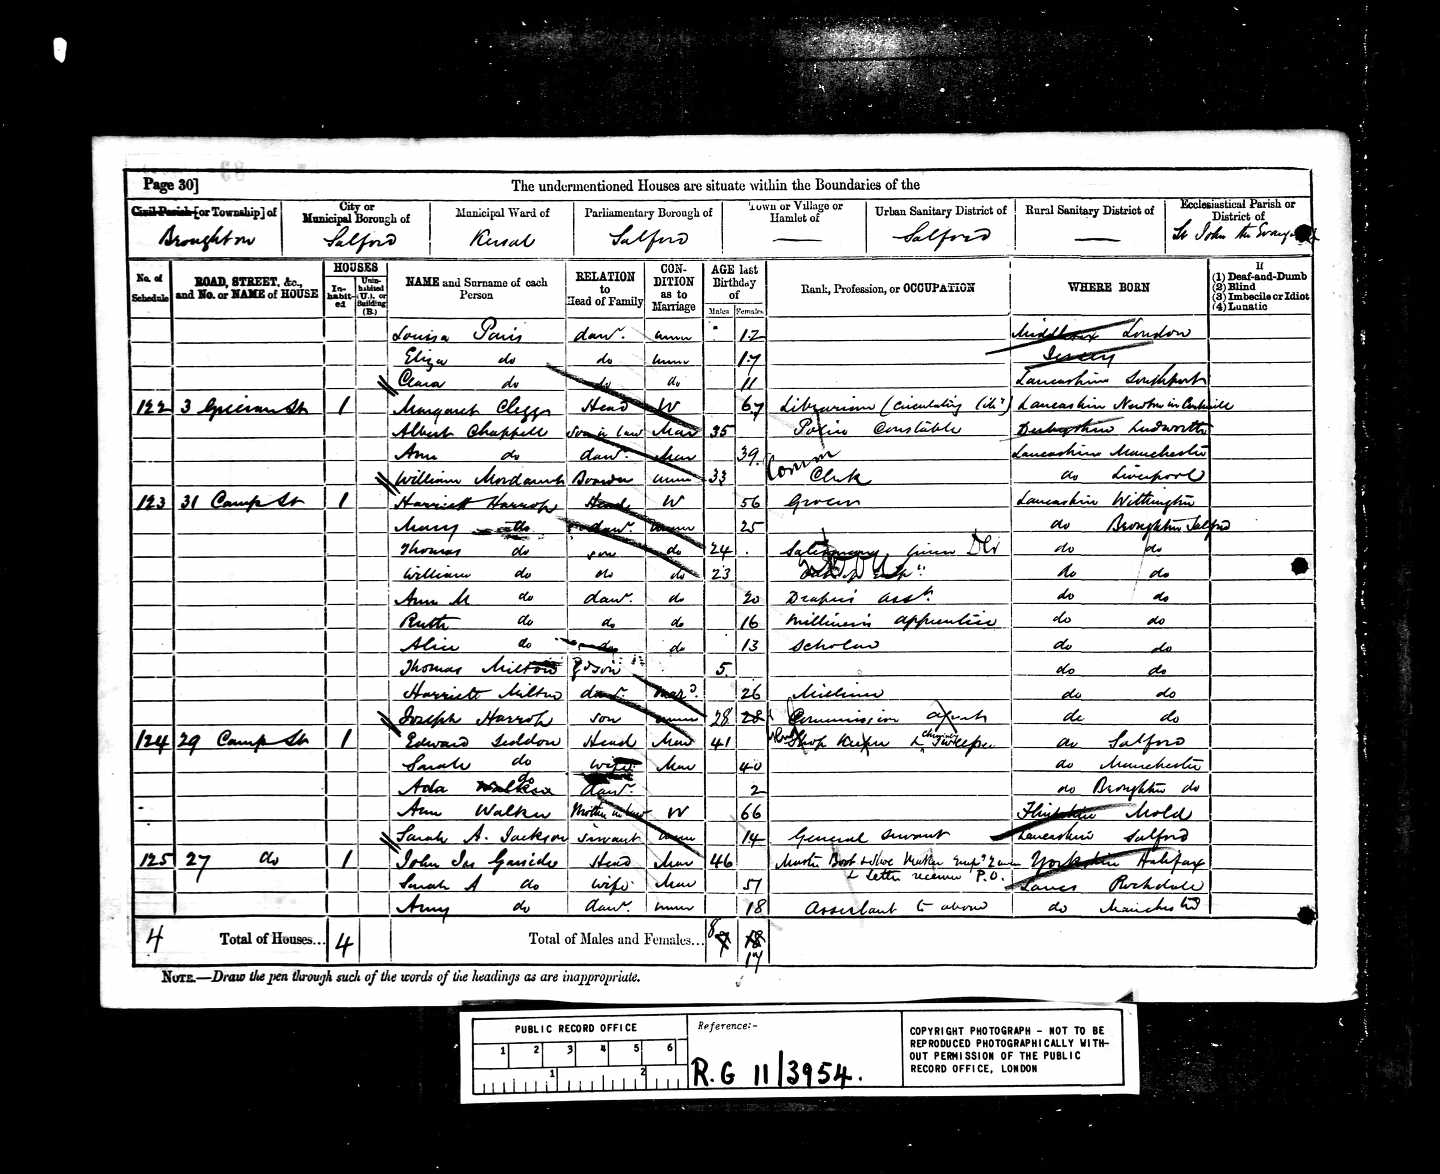 Page 30]
The undermentioned Houses are situate within the Boundaries of the
Civil Parish [or Township] of
City or Municipal Borough of
Municipal Ward of
Parliamentary Borough of
Town or Village or Hamlet of
Urban Sanitary District of
Rural Sanitary District of
Ecclesiastical Parish or District of
Broughton Salford Kersal Salford — Salford — St John the
No. of Schedule
ROAD, STREET, &c., and No. or NAME of HOUSE
HOUSES
In-habit-ed
Unin-habited (U.), or Building (B.)
NAME and Surname of each Person
RELATION to Head of Family
CON-DITION as to Marriage
AGE last Birthday of
Males Females
Rank, Profession, or OCCUPATION
WHERE BORN
If
(1) Deaf-and-Dumb
(2) Blind
(3) Imbecile or Idiot
(4) Lunatic
Louisa Paris daur. unm 12 Middlesex London
Eliza do do unm 17 Jersey
Clara do do do 11 Lancashire Southport
122 3 Grecian St 1 Margaret Clegg Head W 67 Librarian (Circulating Liby) Lancashire Newton
Albert Chappell Son in law Mar 35 Police Constable Derbyshire Ludworth
Ann do daur. Mar 39 Lancashire Manchester
William Mordaunt Boarder unm 33 Comm Clerk do Liverpool
123 31 Camp St 1 Harriett Harrop Head W 56 Grocer Lancashire Withington
Mary do daur. unm 25 do Broughton Salford
Thomas do son do 24 do do
William do do do 23 do do
Ann M do daur. do 20 Draper's asst. do do
Ruth do do do 16 Milliners apprentice do do
Alice do do do 13 Scholar do do
Thomas Milton Gdson 5 do do
Harriett Milton daur. Mard. 26 Milliner do do
Joseph Harrop son unm 28 28 Commission agent do do
124 29 Camp St 1 Edward Seddon Head Mar 41 Shop Keeper & Chimney Sweeper do Salford
Sarah do wife Mar 40 do Manchester
Ada Walker do daur. 2 do Broughton do
Ann Walker Mother in law W 66 Flintshire Mold
Sarah A. Jackson Servant unm 14 General Servant Lancashire Salford
125 27 do 1 John Jas Garside Head Mar 46 Master Boot & Shoe Maker Empg 2 men Yorkshire Halifax
& Letter receiver P.O.
Sarah A do wife Mar 51 Lancs Rochdale
Amy do daur. unm 18 Assistant to above do Manchester
4 Total of Houses... 4 Total of Males and Females... 8 7 18 17
NOTE.—Draw the pen through such of the words of the headings as are inappropriate.
PUBLIC RECORD OFFICE
1 2 3 4 5 6
1 2
Reference:-
R.G 11/3954.
COPYRIGHT PHOTOGRAPH - NOT TO BE
REPRODUCED PHOTOGRAPHICALLY WITH-
OUT PERMISSION OF THE PUBLIC
RECORD OFFICE, LONDON